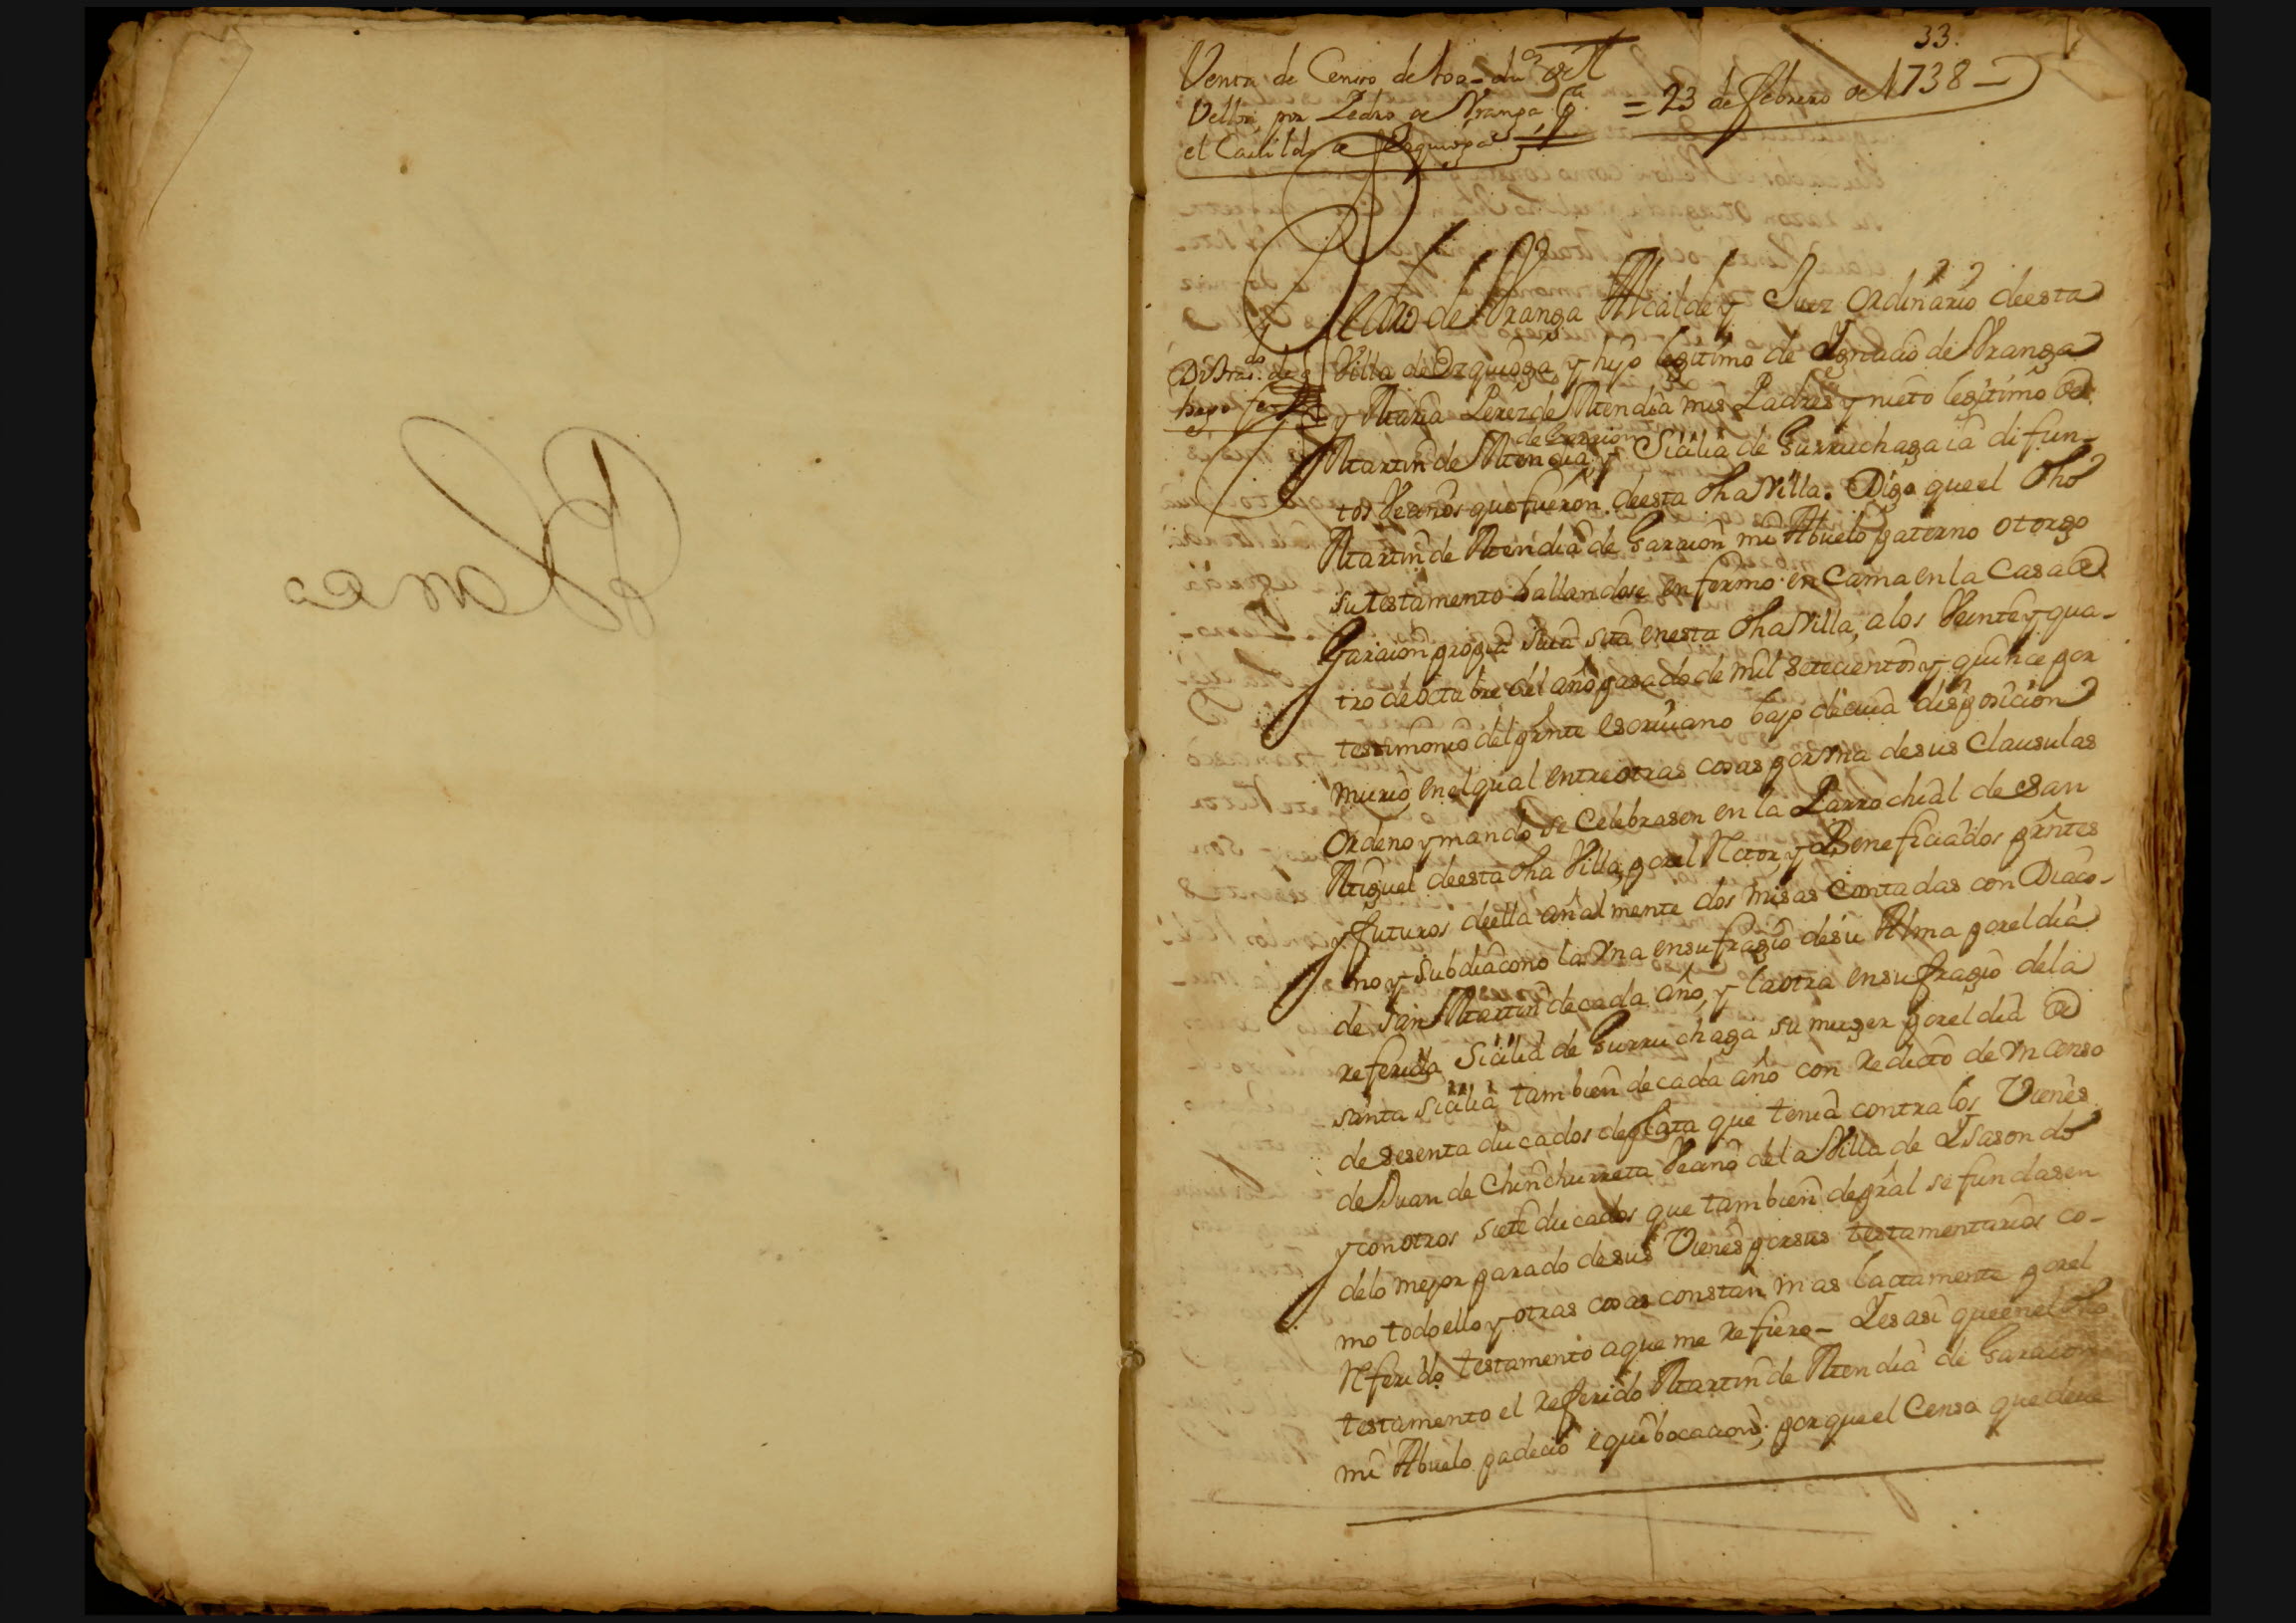 33.
Venta de Censo de 100 du.os de
Vellon, por Pedro de Vranga
el Cavildo de Ezquioga
= 23 de febrero de 1738 —
Pedro de Vranga Alcalde y Juez ordinario de esta
Villa de Ezquioga, y hijo legitimo de Ygnacio de Vranga
y Maria Perez de Mendia mis Padres y nieto legitimo de
de Garaion
Martin de Mendia, y Sicilia de Gurruchaga ia difun-
tos Vecinos que fueron de esta dha Villa. Digo que el dho
Martin de Mendia de Garaion mi Abuelo paterno otorgo
su testamento hallandose enfermo en Cama en la Casa de
Garaion propia suia sita en esta dha Villa, a los Veinte y qua-
tro de octubre del año pasado de mil setecientos y quince por
testimonio del preste escriuano bajo de cuia disposicion
murio, en el qual entre otras cosas por vna de sus Clausulas
ordeno y mando se Celebrasen en la Parrochial de San
Miguel de esta dha Villa, por el Retor, y Beneficiados prntes
y futuros de ella añalmente dos misas Cantadas con Diaco-
no y Subdiacono la vna en sufragio de su Alma por el dia
de San Martin de cada año, y la otra en sufragio de la
referida Sicilia de Gurruchaga su muger por el dia de
santa Sicilia tambien de cada año con redicto de vn censo
de sesenta ducados de plata que tenia contra los Vienes
de Juan de Chinchurreta Vecino de la Villa de Ysasondo
y con otros siete ducados que tambien de pral se fundasen
de lo mejor parado de sus Vienes por sus testamentarios co-
mo todo ello y otras cosas constan mas lactamente por el
Referido testamento a que me refiero — Y es asi que en el dho
testamento el referido Martin de Mendia de Garaion
mi Abuelo padecio equibocacion; por que el Censo que deve